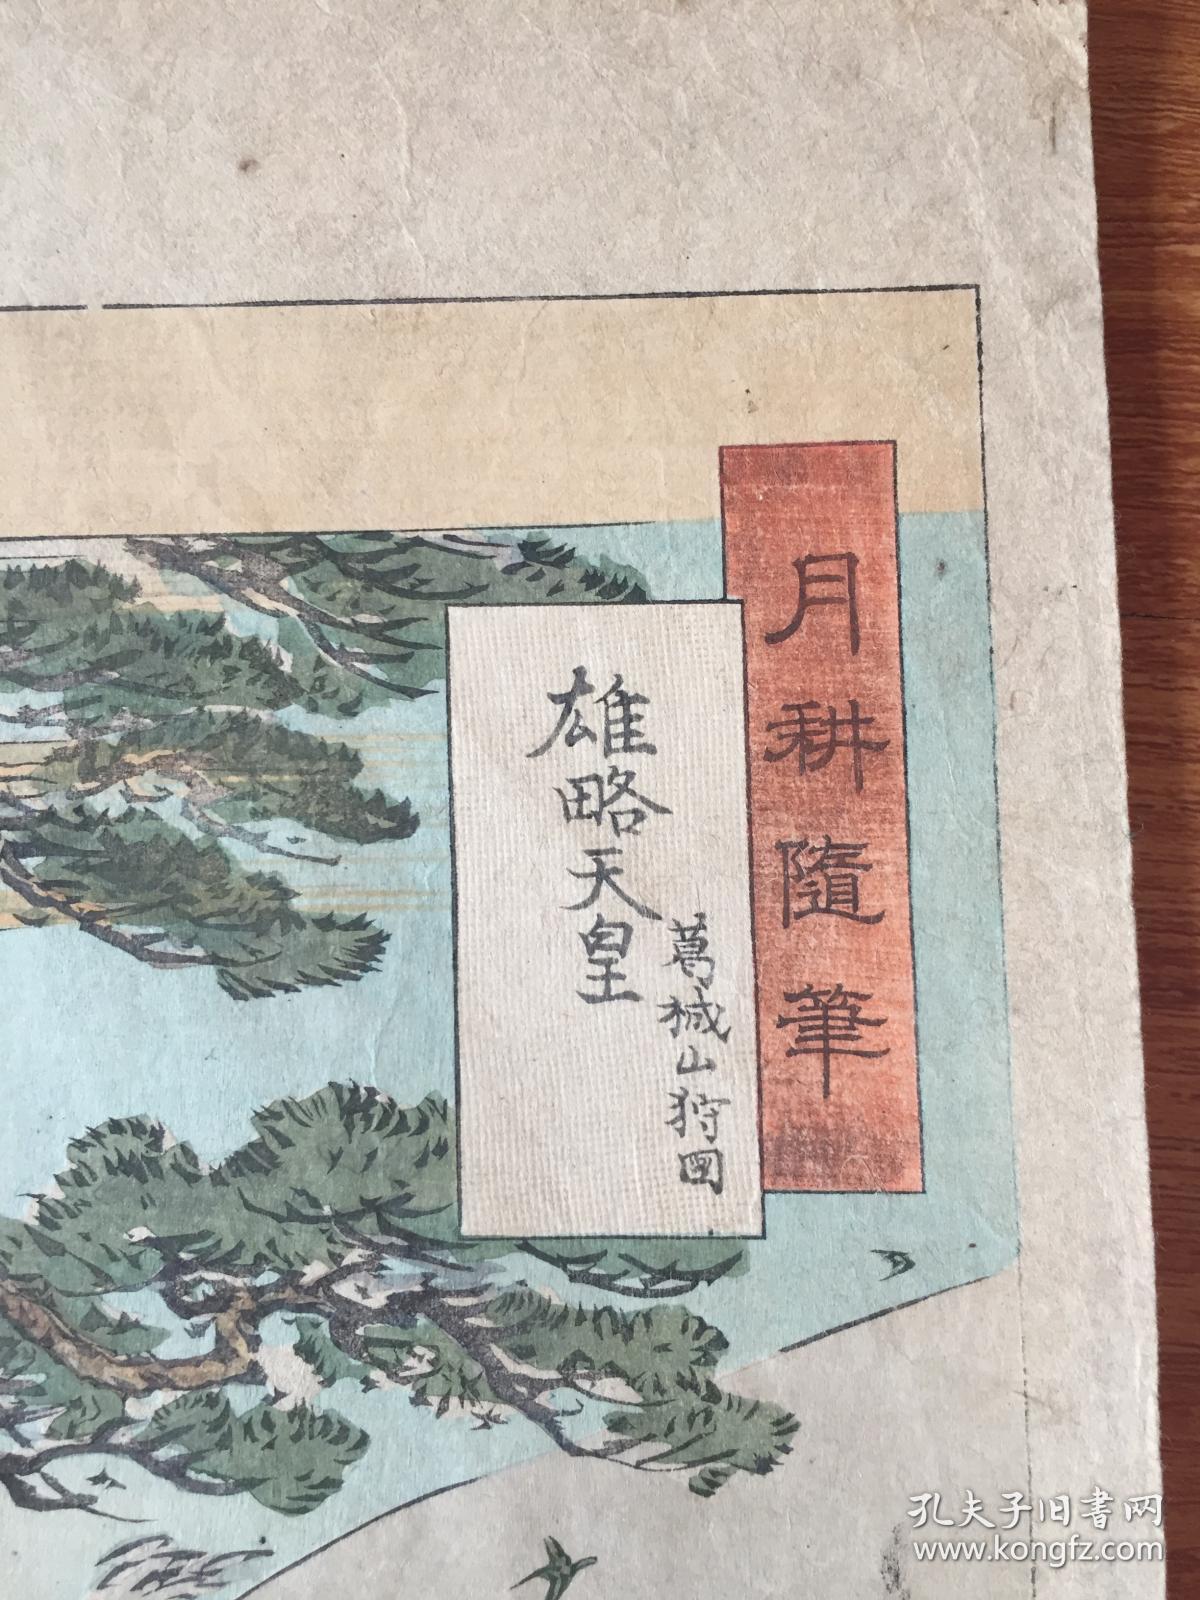 月耕隨筆
雄略天皇
葛城山狩図
孔夫子旧書网
www.kongfz.com